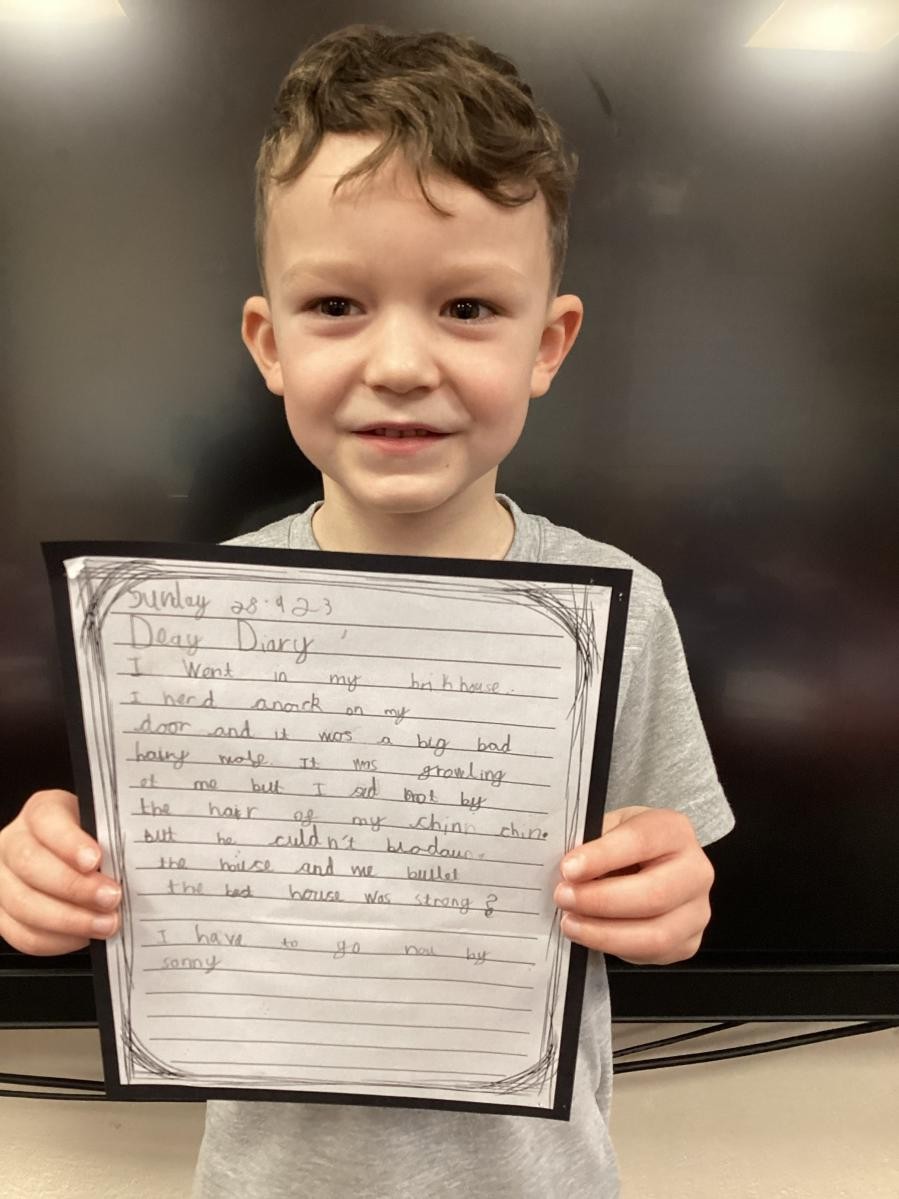 Sunday 28.9 23
Deay Diary
I Went in my brikhouse.
I herd anock on my
door and it was a big bad
hairy wolf. It was growling
at me but I sed not by
the hair of my chinn chin.
But he culdn't blodaun
the house and me bullet
the bed house was strong
I have to go nou by
sonny